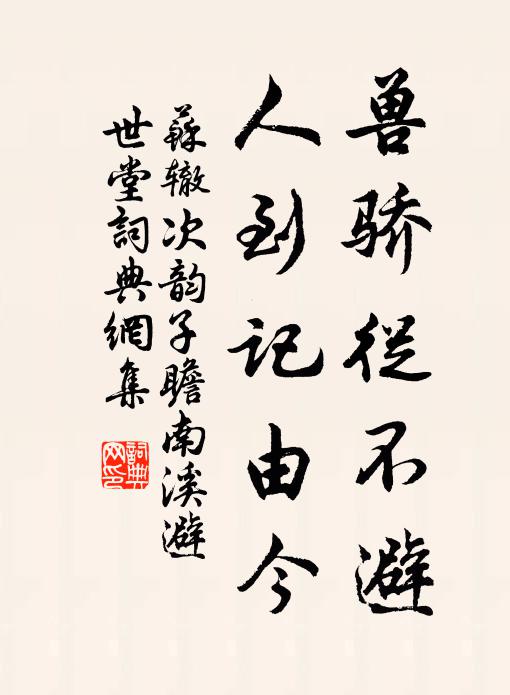 兽骄从不避
人到记由今
蘇辙次韵子瞻南溪避
世堂詞典網集
詞典
网印